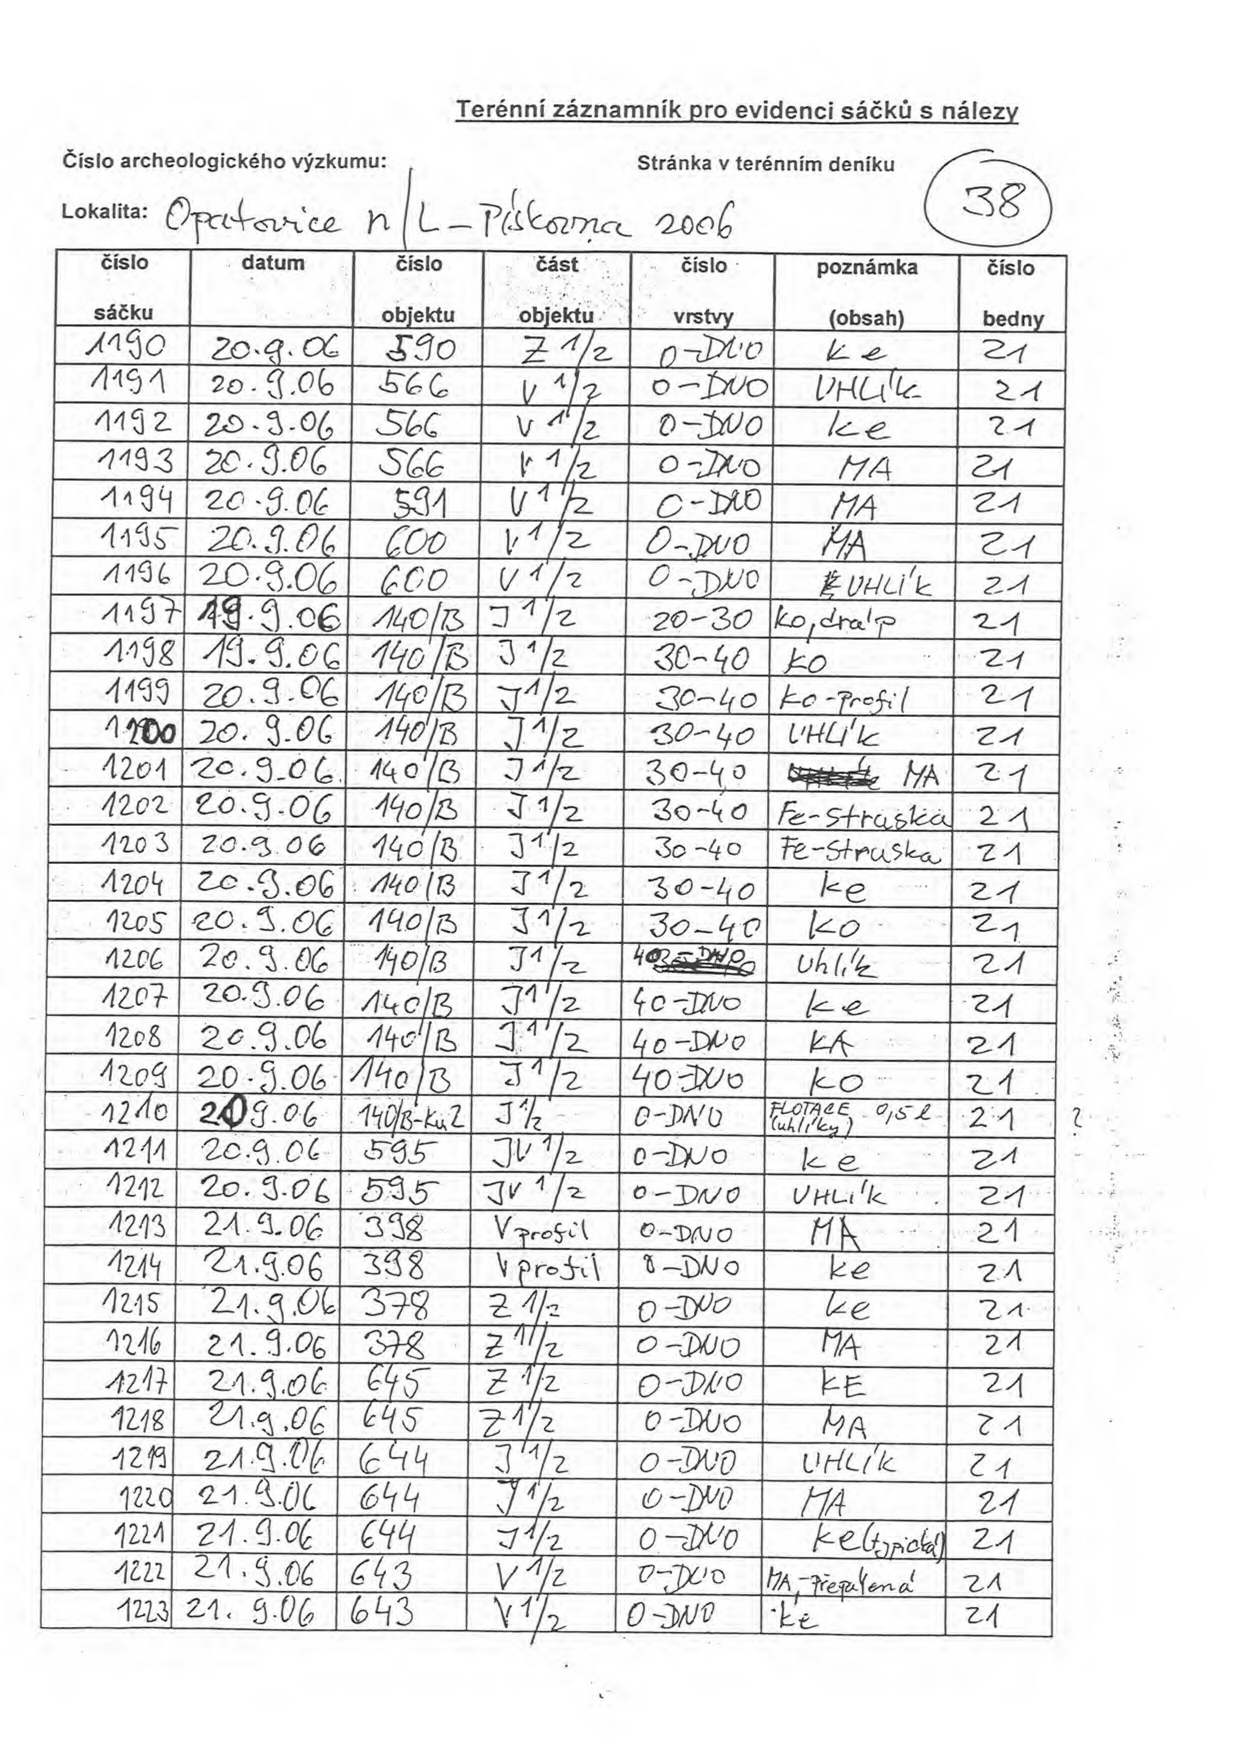 Terénní záznamník pro evidenci sáčků s nálezy
Číslo archeologického výzkumu: Stránka v terénním deníku 38
Lokalita: Opatovice n/L - Pískovna 2006
číslo sáčku datum číslo objektu část objektu číslo vrstvy poznámka (obsah) číslo bedny
1190 20.9.06 590 Z 1/2 0-DNO ke 21
1191 20.9.06 566 V 1/2 0-DNO UHLÍK 21
1192 20.9.06 566 V 1/2 0-DNO ke 21
1193 20.9.06 566 V 1/2 0-DNO MA 21
1194 20.9.06 591 V 1/2 0-DNO MA 21
1195 20.9.06 600 V 1/2 0-DNO MA 21
1196 20.9.06 600 V 1/2 0-DNO UHLÍK 21
1197 19.9.06 140/B J 1/2 20-30 ko, dráp 21
1198 19.9.06 140/B J 1/2 30-40 ko 21
1199 20.9.06 140/B J 1/2 30-40 ko-profil 21
1200 20.9.06 140/B J 1/2 30-40 UHLÍK 21
1201 20.9.06 140/B J 1/2 30-40 MA 21
1202 20.9.06 140/B J 1/2 30-40 Fe-struska 21
1203 20.9.06 140/B J 1/2 30-40 Fe-struska 21
1204 20.9.06 140/B J 1/2 30-40 ke 21
1205 20.9.06 140/B J 1/2 30-40 ko 21
1206 20.9.06 140/B J 1/2 uhlík 21
1207 20.9.06 140/B J 1/2 40-DNO ke 21
1208 20.9.06 140/B J 1/2 40-DNO KA 21
1209 20.9.06 140/B J 1/2 40-DNO KO 21
1210 20 9.06 140/B-ků2 J 1/2 0-DNO FLOTACE (uhlíky) 0,5 l 21 ?
1211 20.9.06 595 JV 1/2 0-DNO ke 21
1212 20.9.06 595 JV 1/2 0-DNO UHLÍK 21
1213 21.9.06 398 V profil 0-DNO MA 21
1214 21.9.06 398 V profil 0-DNO ke 21
1215 21.9.06 378 Z 1/2 0-DNO ke 21
1216 21.9.06 378 Z 1/2 0-DNO MA 21
1217 21.9.06 645 Z 1/2 0-DNO KE 21
1218 21.9.06 645 Z 1/2 0-DNO MA 21
1219 21.9.06 644 J 1/2 0-DNO UHLÍK 21
1220 21.9.06 644 J 1/2 0-DNO MA 21
1221 21.9.06 644 J 1/2 0-DNO ke (typická) 21
1222 21.9.06 643 V 1/2 0-DNO MA, přepálená 21
1223 21.9.06 643 V 1/2 0-DNO ke 21